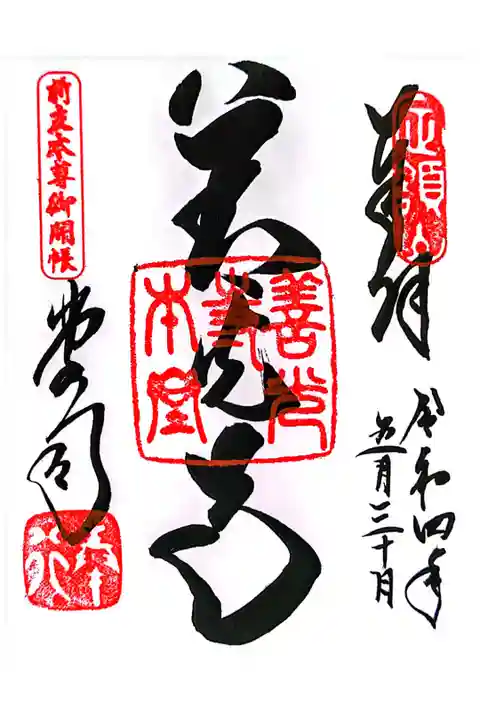 奉拝
定額山
令和四年
五月三十日
善光寺
善光
寺
本堂
前立本尊御開帳
堂司